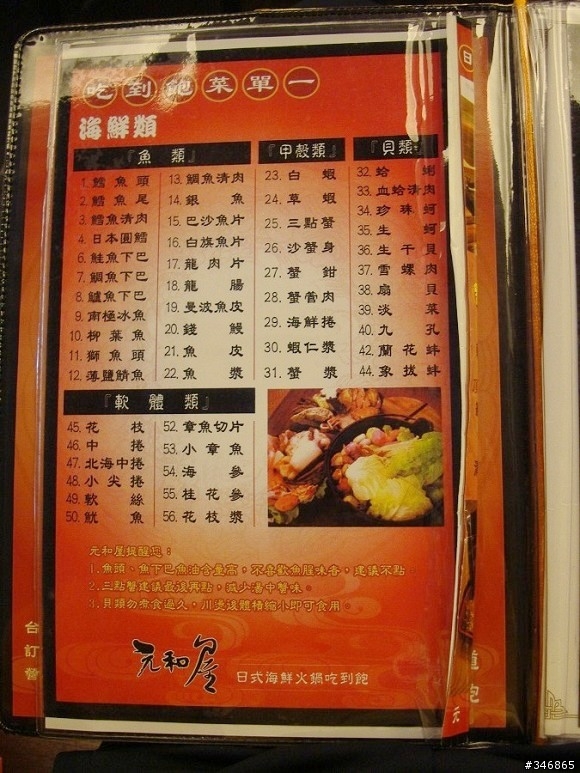 吃到飽菜單一
海鮮類
『魚類』
1. 鱈魚頭
2. 鱈魚尾
3. 鱈魚清肉
4. 日本圓鱈
6. 鮭魚下巴
7. 鯛魚下巴
8. 鱸魚下巴
9. 南極冰魚
10. 柳葉魚
11. 獅魚頭
12. 薄鹽鯖魚
13. 鯛魚清肉
14. 銀魚
15. 巴沙魚片
16. 白旗魚片
17. 龍肉片
18. 龍腸
19. 曼波魚皮
20. 錢鰻
21. 魚皮
22. 魚漿
『甲殼類』
23. 白蝦
24. 草蝦
25. 三點蟹
26. 沙蟹身
27. 蟹鉗
28. 蟹管肉
29. 海鮮捲
30. 蝦仁漿
31. 蟹漿
『貝類』
32. 蛤蜊
33. 血蛤清肉
34. 珍珠蚵
35. 生蚵
36. 生干貝
37. 雪螺肉
38. 扇貝
39. 淡菜
40. 九孔
42. 蘭花蚌
44. 象拔蚌
『軟體類』
45. 花枝
46. 中捲
47. 北海中捲
48. 小尖捲
49. 軟絲
50. 魷魚
52. 章魚切片
53. 小章魚
54. 海參
55. 桂花參
56. 花枝漿
元和屋提醒您：
1.魚頭、魚下巴魚油含量高，不喜歡魚腥味者，建議不點。
2.三點蟹建議最後再點，減少湯中蟹味。
3.貝類勿煮食過久，川燙後體積縮小即可食用。
元和屋
日式海鮮火鍋吃到飽
台
訂
日
元
飽
#346865